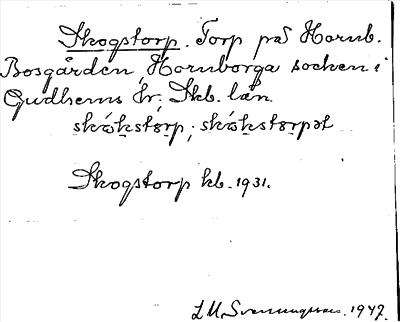 Skogstorp. Torp på Hornb.
Bosgården, Hornborga socken i
Gudhems hr, Skb. län.
skókstɔrp; skókstɔrpət
Skogstorp kb. 1931.
L M Svenungsson. 1947.